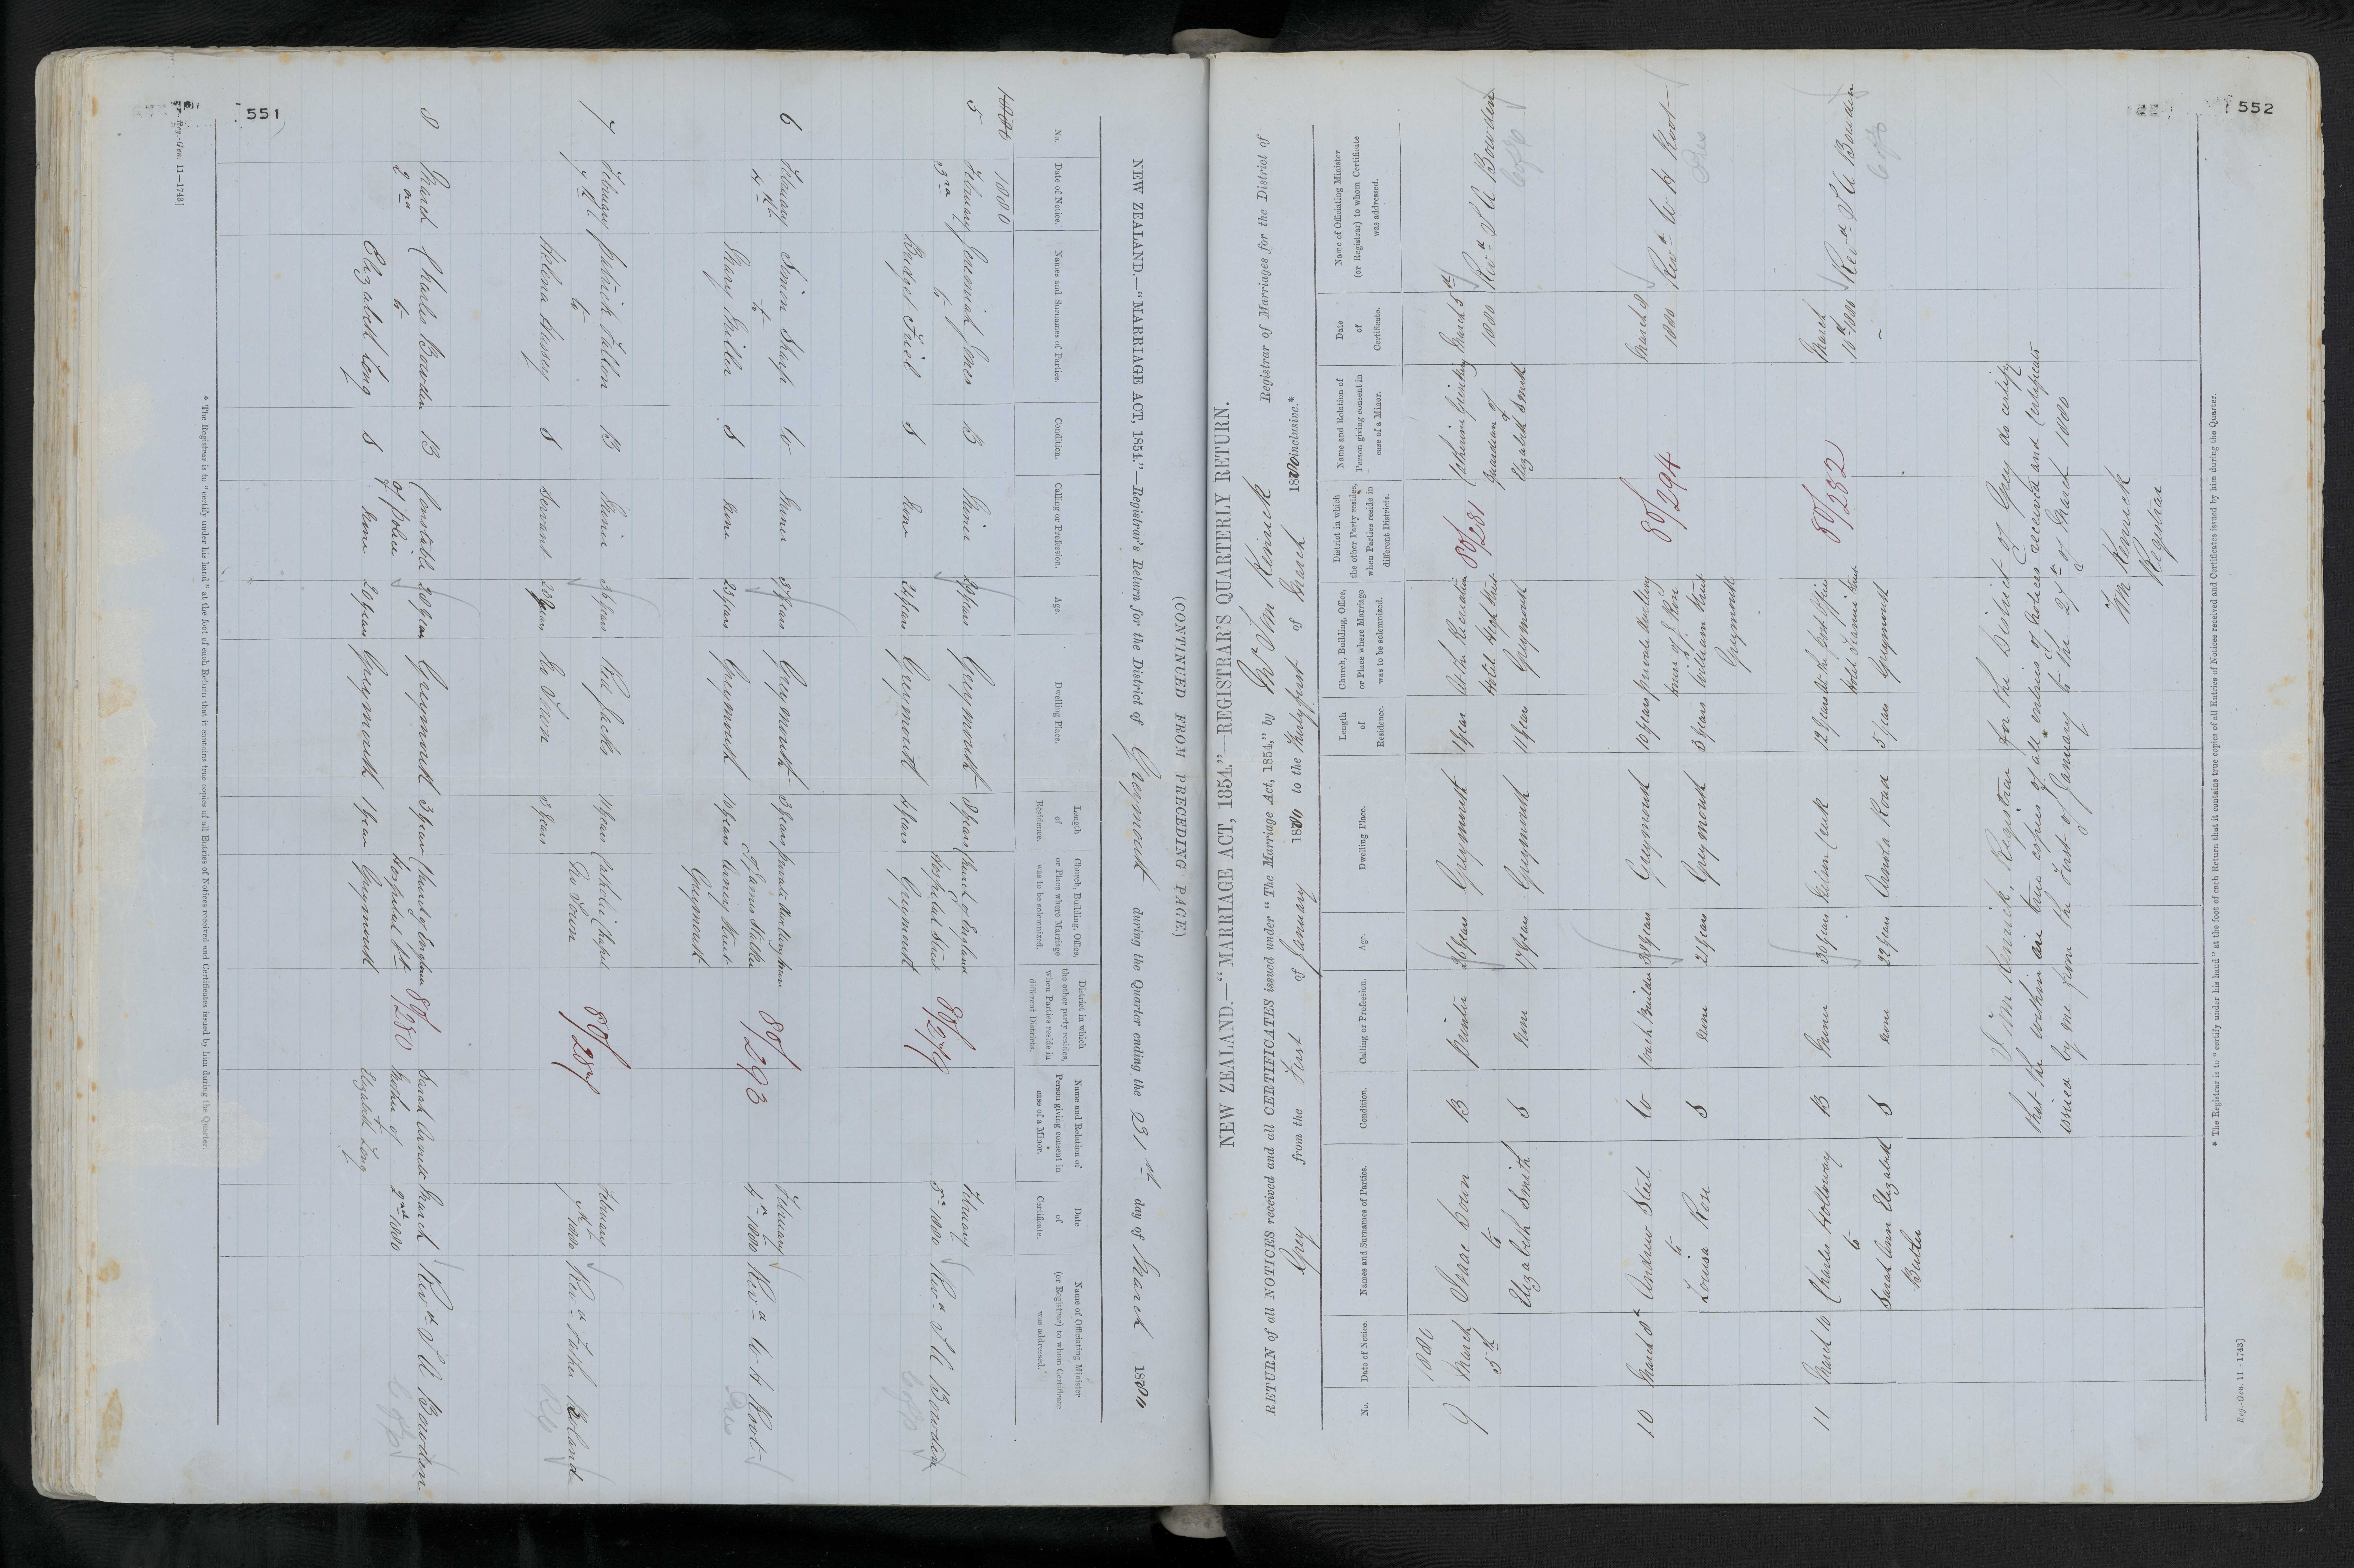 551
(CONTINUED FROM PRECEDING PAGE)
NEW ZEALAND.—"MARRIAGE ACT, 1854."—Registrar's Return for the District of Greymouth during the Quarter ending the 31st day of March 1880
No. Date of Notice. Names and Surnames of Parties. Condition. Calling or Profession. Age. Dwelling Place. Length of Residence. Church, Building, Office, or Place where Marriage was to be solemnized. District in which the other party resides, when Parties reside in different Districts. Name and Relation of Person giving consent in case of a Minor. Date of Certificate. Name of Officiating Minister (or Registrar) to whom Certificate was addressed.
1880
5 February Jeremiah Jones B Miner 29 years Greymouth 8 years Church of England 80/279 February Revd S A Bowden
3rd to Hospital Street 5th 1880 C of E
Bridget Friel S None 24 years Greymouth 4 years Greymouth
6 February Simon Sharp W Miner 37 years Greymouth 3 years private dwelling 80/293 February Revd W H Root
4th to 4th 1880 Pres
Mary Miller S None 23 years Greymouth 10 years Greymouth
7 February Patrick Fallon B Miner 36 years Red Jacks 11 years Catholic Chapel 80/287 February Revd Father
7th to No Town 7th 1880
Helena Hussey S Servant No Town 3 years
8 March Charles Bowden B Constable 28 years Greymouth 3 years Church of England 80/280 Sarah March Revd S A Bowden
2nd to of police Hospital St mother of 2nd 1880 C of E
Elizabeth Long S None 20 years Greymouth 1 year Greymouth Elizabeth Long
* The Registrar is to "certify under his hand" at the foot of each Return that it contains true copies of all Entries of Notices received and Certificates issued by him during the Quarter.
Reg.-Gen. 11—1743]
552
NEW ZEALAND.—"MARRIAGE ACT, 1854."—REGISTRAR'S QUARTERLY RETURN.
RETURN of all NOTICES received and all CERTIFICATES issued under "The Marriage Act, 1854," by Mr Wm Kenrick Registrar of Marriages for the District of
Grey from the First of January 1880 to the thirty first of March 1880 inclusive.*
No. Date of Notice. Names and Surnames of Parties. Condition. Calling or Profession. Age. Dwelling Place. Length of Residence. Church, Building, Office, or Place where Marriage was to be solemnized. District in which the other Party resides, when Parties reside in different Districts. Name and Relation of Person giving consent in case of a Minor. Date of Certificate. Name of Officiating Minister (or Registrar) to whom Certificate was addressed.
1880
9 March Isaac B Painter 26 years Greymouth 1 year At the Recreation 80/281 Catherine March 5th Revd S A Bowden
5th to Hotel High Street Guardian of 1880 C of E
Elizabeth Smith S None 17 years Greymouth 11 years Greymouth Elizabeth Smith
10 March 8th Andrew Steel W Coach Builder 38 years Greymouth 10 years private dwelling 80/294 March 8 Revd W H Root
to house of J. Rose 1880 Pres
Louisa Rose S None 21 years Greymouth 3 years William Street
Greymouth
11 March 10 Charles Holloway B Miner 30 years Nelson Creek 12 years At the post office 80/282 March Revd S A Bowden
to Hotel Street 10th 1880 C of E
Sarah Ann Elizabeth S None 22 years Arnold Road 5 years Greymouth
Butler
I Wm Kenrick, Registrar for the District of Grey do certify
that the within are true copies of all entries of notices received and Certificates
issued by me from the First of January to the 27th of March 1880
Wm Kenrick
Registrar
* The Registrar is to "certify under his hand" at the foot of each Return that it contains true copies of all Entries of Notices received and Certificates issued by him during the Quarter.
Reg.-Gen. 11—1743]